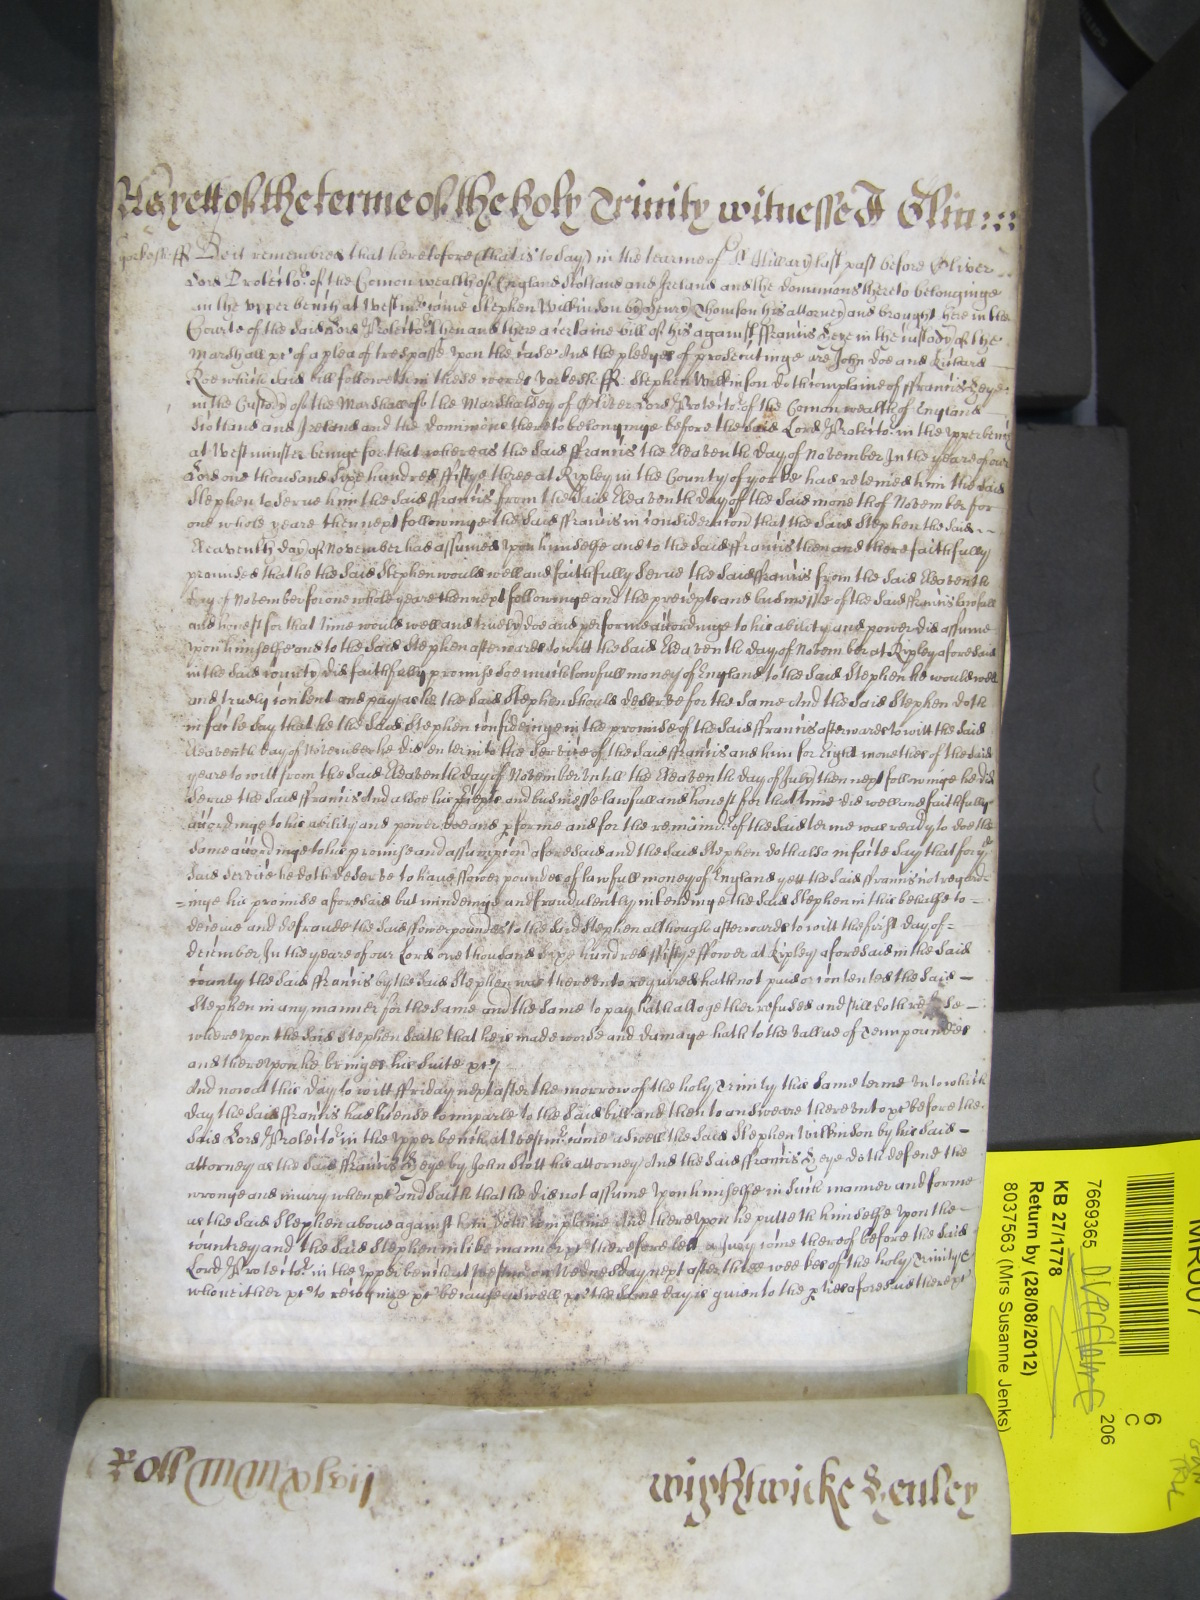 As yett of the terme of the holy Trinity witnesse J Glin :::
Yorkesh ss Be it remembred that heretofore (that is to say) in the tearme of St Hillary last past before Oliver
Lord Protector of the Comon wealth of England Scotland and Ireland and the dominions thereto belonginge
in the upper bench at Westmr came Stephen Wilkinson by Henry Thomson his attorney and brought here in the
Courte of the said Lord Protector then and there a certaine bill of his against ffrancis in the custody of the
Marshall &c of a plea of trespasse upon the case And the pledges of prosecutinge are John Doe and Richard
Roe which said bill followeth in these words Yorkesh ss: Stephen Wilkinson doth complaine of ffrancis
in the Custody of the Marshall of the Marshalsey of Oliver Lord Protector of the Comon wealth of England
Scotland and Ireland and the dominions thereto belonginge before the said Lord Protector in the upper bench
at Westminster beinge for that whereas the said ffrancis the Eleaventh day of November In the yeare of our
Lord one thousand Sixe hundred ffiftye three at Ripley in the County of yorke had reteined him the said
Stephen to serve him the said ffrancis from the said Eleaventh day of the said moneth of November for
one whole yeare then next followinge the said ffrancis in consideration that the said Stephen the said
Eleaventh day of November had assumed upon himselfe and to the said ffrancis then and there faithfully
promised that he the said Stephen would well and faithfully serve the said ffrancis from the said Eleaventh
day of November for one whole yeare then next followinge and the precepts and businesse of the said ffrancis lawfull
and honest for that time would well and truely doe and performe accordinge to his ability and power did assume
upon himselfe and to the said Stephen afterwards to witt the said Eleaventh day of November at Ripley aforesaid
in the said county did faithfully promise soe much lawfull money of England to the said Stephen he would well
and truely content and pay as he the said Stephen should deserve for the same And the said Stephen doth
in facte say that he the said Stephen confideinge in the promise of the said ffrancis afterwards to witt the said
Eleaventh day of November he did enter into the service of the said ffrancis and him for Eight monethes of the said
yeare to witt from the said Eleaventh day of November untill the Eleaventh day of July then next followinge he did
serve the said ffrancis And all his precepts and businesse lawfull and honest for that time did well and faithfully
accordinge to his ability and power doe and pforme and for the remaind of the said terme was ready to doe the
same accordinge to his promise and assumption aforesaid and the said Stephen doth also in facte say that for
said service he doth deserve to have ffower poundes of lawfull money of England yett the said ffrancis not regard=
=inge his promise aforesaid but mindeinge and fraudulently intendinge the said Stephen in this behalfe to
deceive and defraude the said ffower poundes to the said Stephen although afterwards to witt the first day of
december In the yeare of our Lord one thousand sixe hundred ffiftye ffower at Ripley aforesaid in the said
county the said ffrancis by the said Stephen was thereunto required hath not paid or contented the said
Stephen in any manner for the same and the same to pay hath altogether refused and still doth refuse
whereupon the said Stephen saith that he is made worse and damage hath to the vallue of Tenn poundes
and thereupon he bringes his suite &c
And now at this day to witt ffriday next after the morrow of the holy Trinity this same terme Unto which
day the said ffrancis had license to imparle to the said bill and then to answeare thereunto &c before the
said Lord Protector in the upper bench at Westmr came aswell the said Stephen Wilkinson by his said
attorney as the said ffrancis by John Scott his attorney And the said ffrancis doth defend the
wronge and iniury when &c and saith that he did not assume upon himselfe in such manner and forme
as the said Stephen above against him doth complaine And thereupon he putteth himselfe upon the
countrey and the said Stephen in like manner &c therefore let a Jury come thereof before the said
Lord Protector in the upper bench at Westmr on Wednesday next after three weekes of the holy Trinity &
who neither &c to recognize &c because aswell &c the same day is given to the pties aforesaid there &c
Roll mmmxlvii
wightwicke Henley
6
C
206
7669365
KB 27/1778
Return by (28/08/2012)
8037563 (Mrs Susanne Jenks)